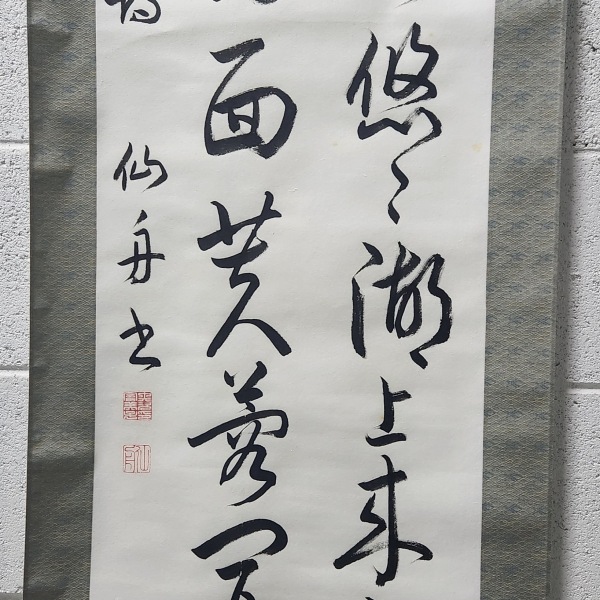 悠々湖上来
面芙蓉開
仙舟書